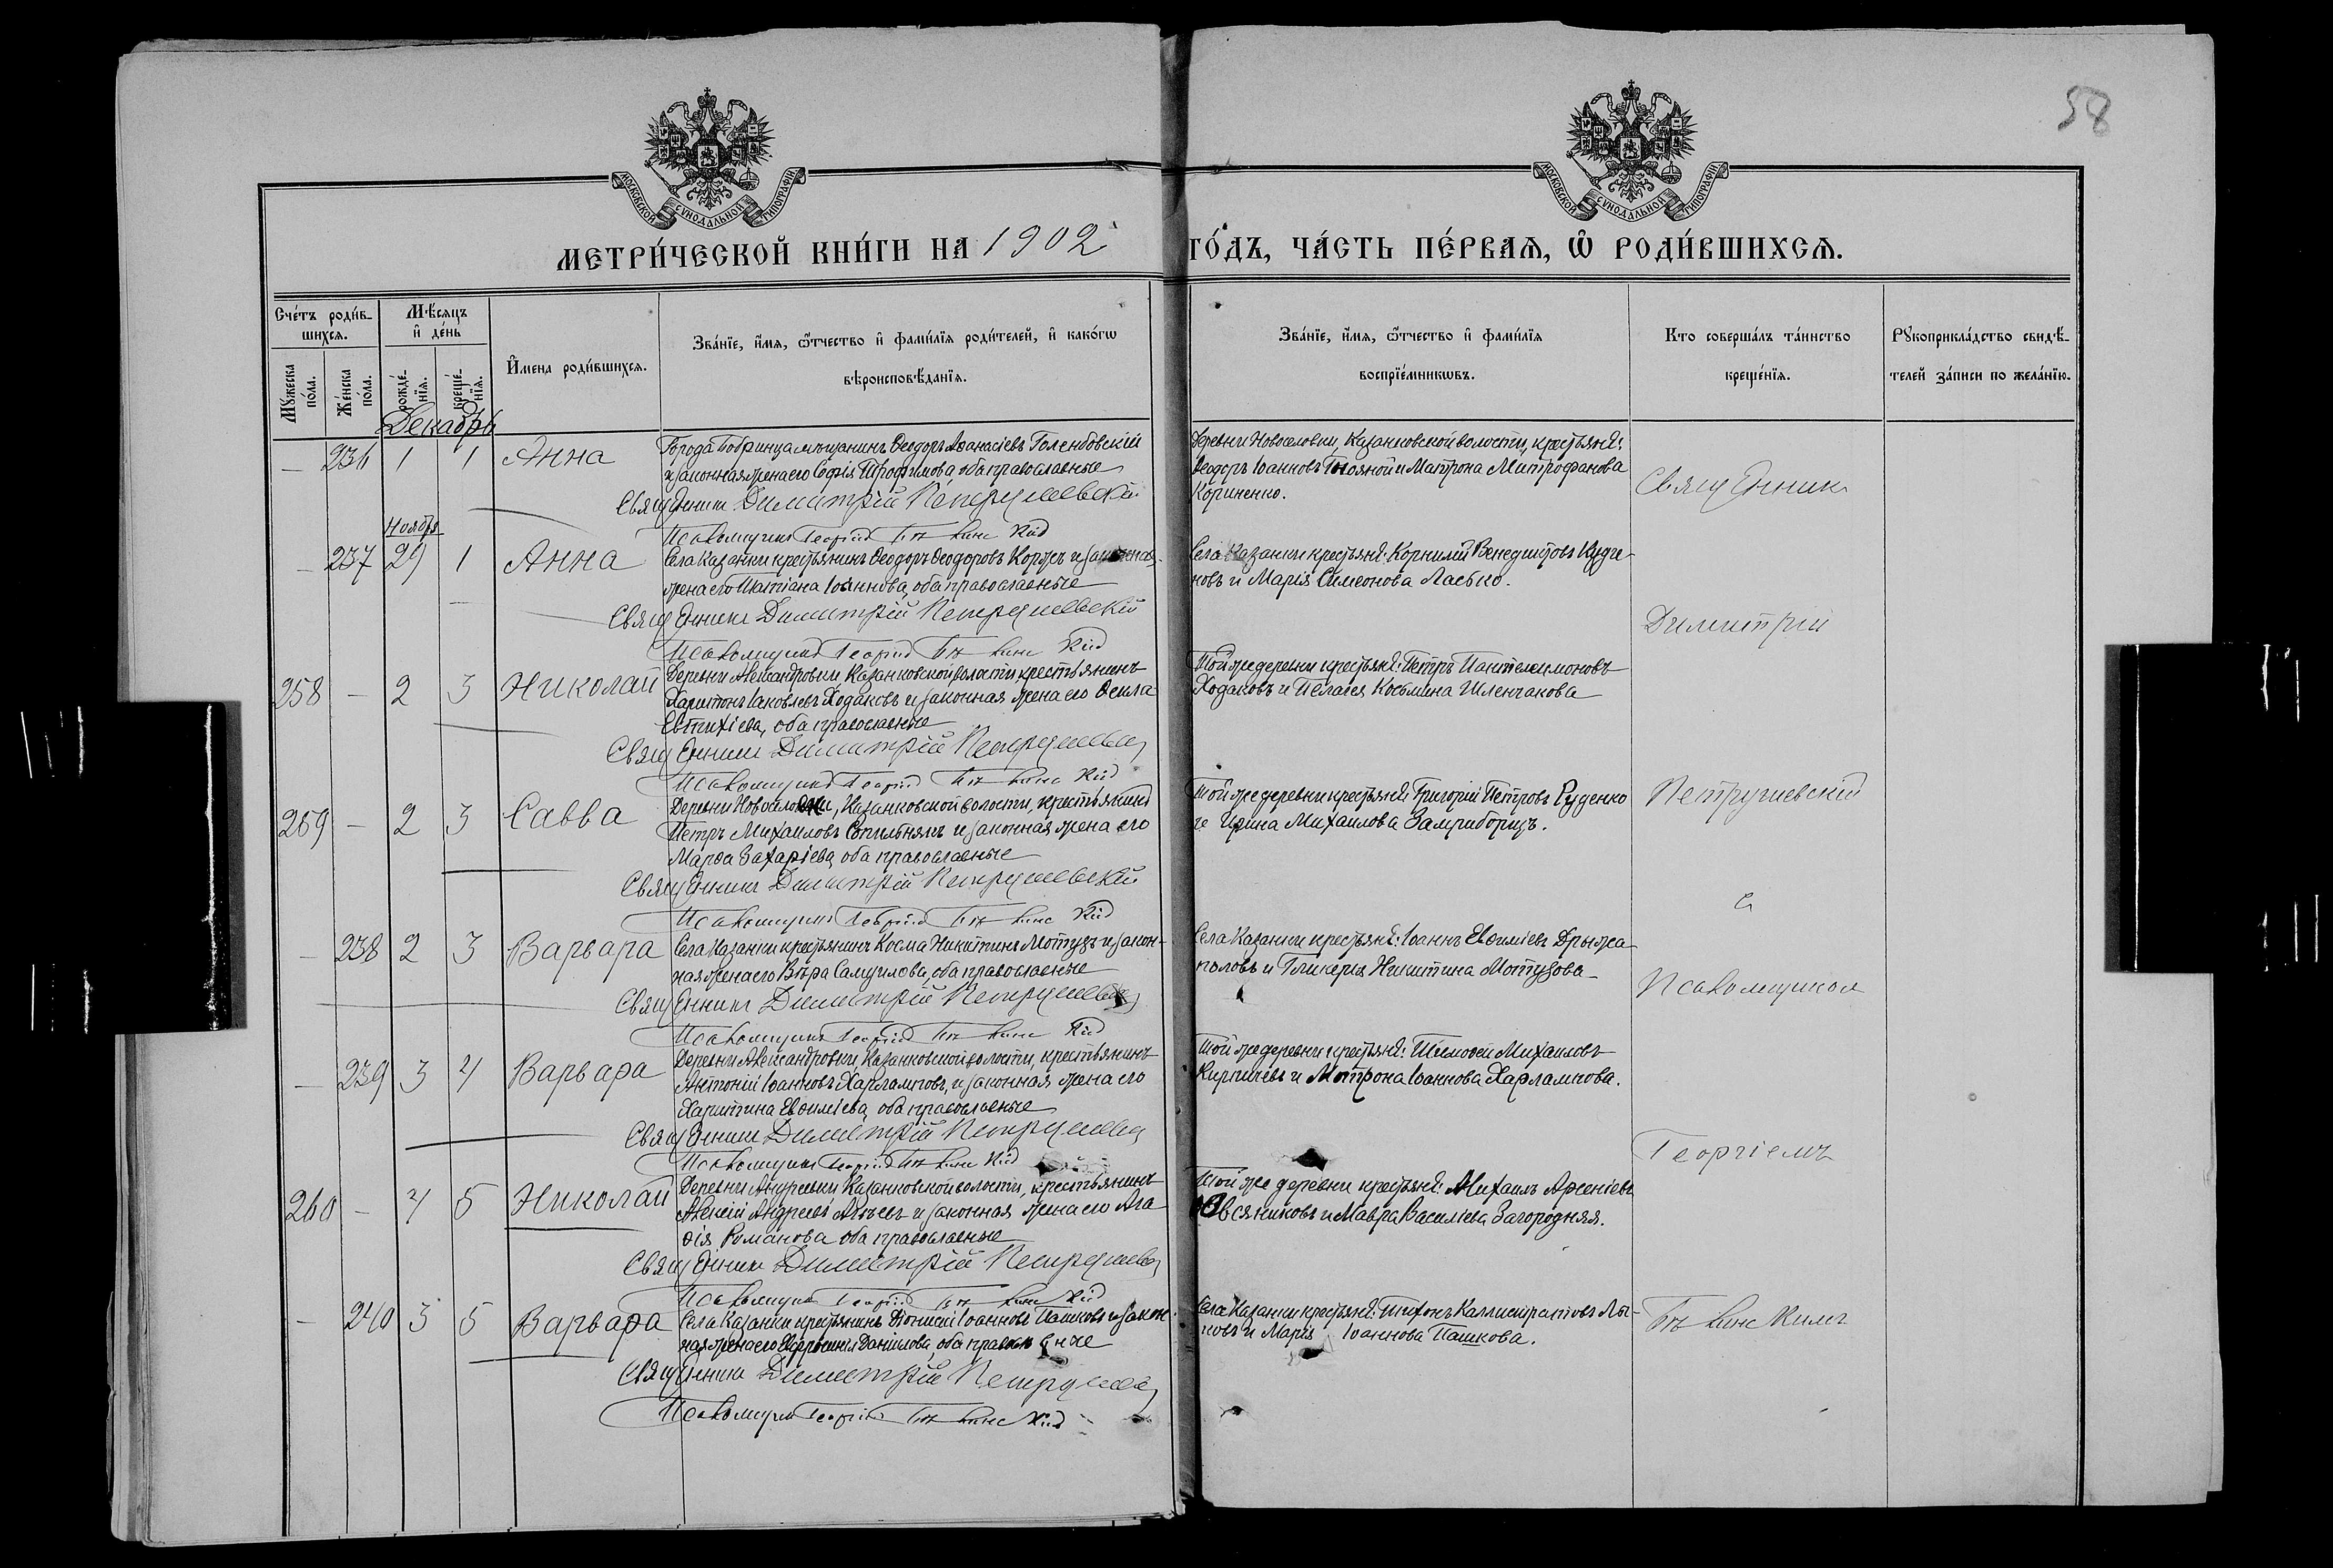 58
МОСКОВСКОЙ СѴНОДАЛЬНОЙ ТИПОГРАФІИ
МОСКОВСКОЙ СѴНОДАЛЬНОЙ ТИПОГРАФІИ
МЕТРИ́ЧЕСКОЙ КНИ́ГИ НА 1902 ГО́ДЪ, ЧА́СТЬ ПЕ́РВАѦ, Ѽ РОДИ́ВШИХСѦ.
Сче́тъ роди́в-
шихсѧ.
Мꙋ́жеска
по́ла.
Же́нска
по́ла.
Мѣ́сѧцъ
и҆ де́нь
рожде́-
нїѧ.
креще́-
нїѧ.
И҆мена роди́вшихсѧ.
Зва́нїе, и҆́мѧ, ѻ҆́тчество и҆ фами́лїѧ роди́телей, и҆ како́гѡ
вѣроисповѣ́данїѧ.
Зва́нїе, и҆́мѧ, ѻ҆́тчество и҆ фами́лїѧ
воспрїе́мникѡвъ.
Кто соверша́лъ та́инство
креще́нїѧ.
Рꙋкоприкла́дство свидѣ́-
телей за́писи по жела́нїю.
Декабрь
– 236 1 1 Анна
Города Бобринца мѣщанинъ Ѳеодоръ Аѳанасіевъ Голембовскій
и законная жена его Софія Трофимова, оба православные
Священникъ Димитрій Петрушевскій
Псаломщикъ Георгій
Деревни Новоселовки, Казанковской волости, крестьяне:
Ѳеодоръ Іоанновъ Гнояной и Матрона Митрофанова
Кориненко.
Священникъ
Ноября
– 237 29 1 Анна
Села Казанки крестьянинъ Ѳеодоръ Ѳеодоровъ Коржъ и законная
жена его Татіана Іоаннова, оба православные
Священникъ Димитрій Петрушевскій
Псаломщикъ Георгій
Села Казанки крестьяне: Корнилій Венедиктовъ
новъ и Марія Симеонова Ласько.
Димитрій
258 – 2 3 Николай
Деревни Александровки, Казанковской волости, крестьянинъ
Харитонъ Іаковлевъ Ходаковъ и законная жена его Ѳекла
Евтихіева, оба православные
Священникъ Димитрій Петрушевскій
Псаломщикъ Георгій
Той же деревни крестьяне: Петръ Пантелеимоновъ
Ходаковъ и Пелагея Косьмина Шленчакова
259 – 2 3 Савва
Деревни Новоселовки, Казанковской волости, крестьянинъ
Петръ Михаиловъ Сопильнякъ и законная жена его
Марѳа Захаріева, оба православные
Священникъ Димитрій Петрушевскій
Псаломщикъ Георгій
Той же деревни крестьяне: Григорій Петровъ Руденко
и Ирина Михаилова Замриборщъ.
Петрушевскій
съ
– 238 2 3 Варвара
Села Казанки крестьянинъ Косма Никитинъ Мотузъ и закон-
ная жена его Вѣра Самуилова, оба православные
Священникъ Димитрій Петрушевскій
Псаломщикъ Георгій
Села Казанки крестьяне: Іоаннъ Евѳиміевъ Дрыжа-
половъ и Гликерія Никитина Мотузова
Псаломщикомъ
– 239 3 4 Варвара
Деревни Александровки, Казанковской волости, крестьянинъ
Антоній Іоанновъ Харламповъ, и законная жена его
Харитина Евѳиміева, оба православные
Священникъ Димитрій Петрушевскій
Псаломщикъ Георгій
Той же деревни крестьяне: Тимоѳей Михаиловъ
Кирпичевъ и Матрона Іоаннова Харлампова.
Георгіемъ
260 – 4 5 Николай
Деревни Андреевки, Казанковской волости, крестьянинъ
Алексій Андреевъ и законная жена его Ага-
ѳія Романова оба православные
Священникъ Димитрій Петрушевскій
Псаломщикъ Георгій
Той же деревни крестьяне: Михаилъ Арсеніевъ
Овсяниковъ и Мавра Василіева Загородняя.
– 240 3 5 Варвара
Села Казанки крестьянинъ Діонисій Іоанновъ Пашковъ и закон-
ная жена его Евфросинія Даніилова, оба православные
Священникъ Димитрій Петрушевскій
Псаломщикъ Георгій
Села Казанки крестьяне: Тихонъ Каллистратовъ Лы-
ковъ и Марія Іоаннова Пашкова.